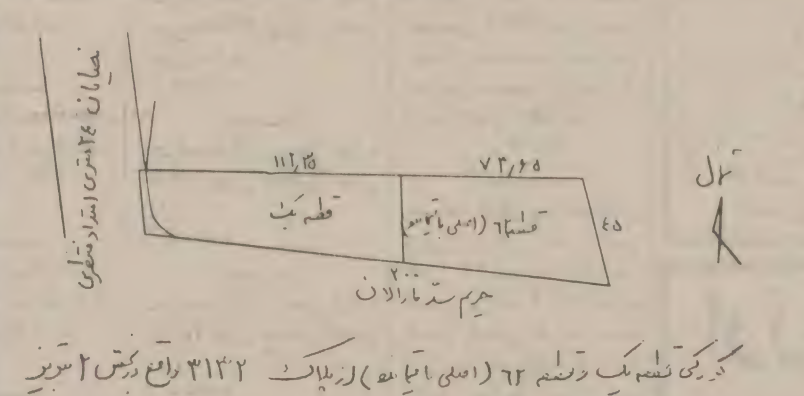 خیابان ۲۴ متری امتداد منتظری
۱۱۲٫۳۵
۷۳٫۶۵
شمال
قطعه یک
قطعه ۶۲ (اصلی باقیمانده)
۴۵
۲۰۰
حریم سد قارالان
کروکی قطعه یک و قطعه ۶۲ (اصلی باقیمانده) از پلاک ۳۱۳۲ واقع در بخش ۲ تبریز